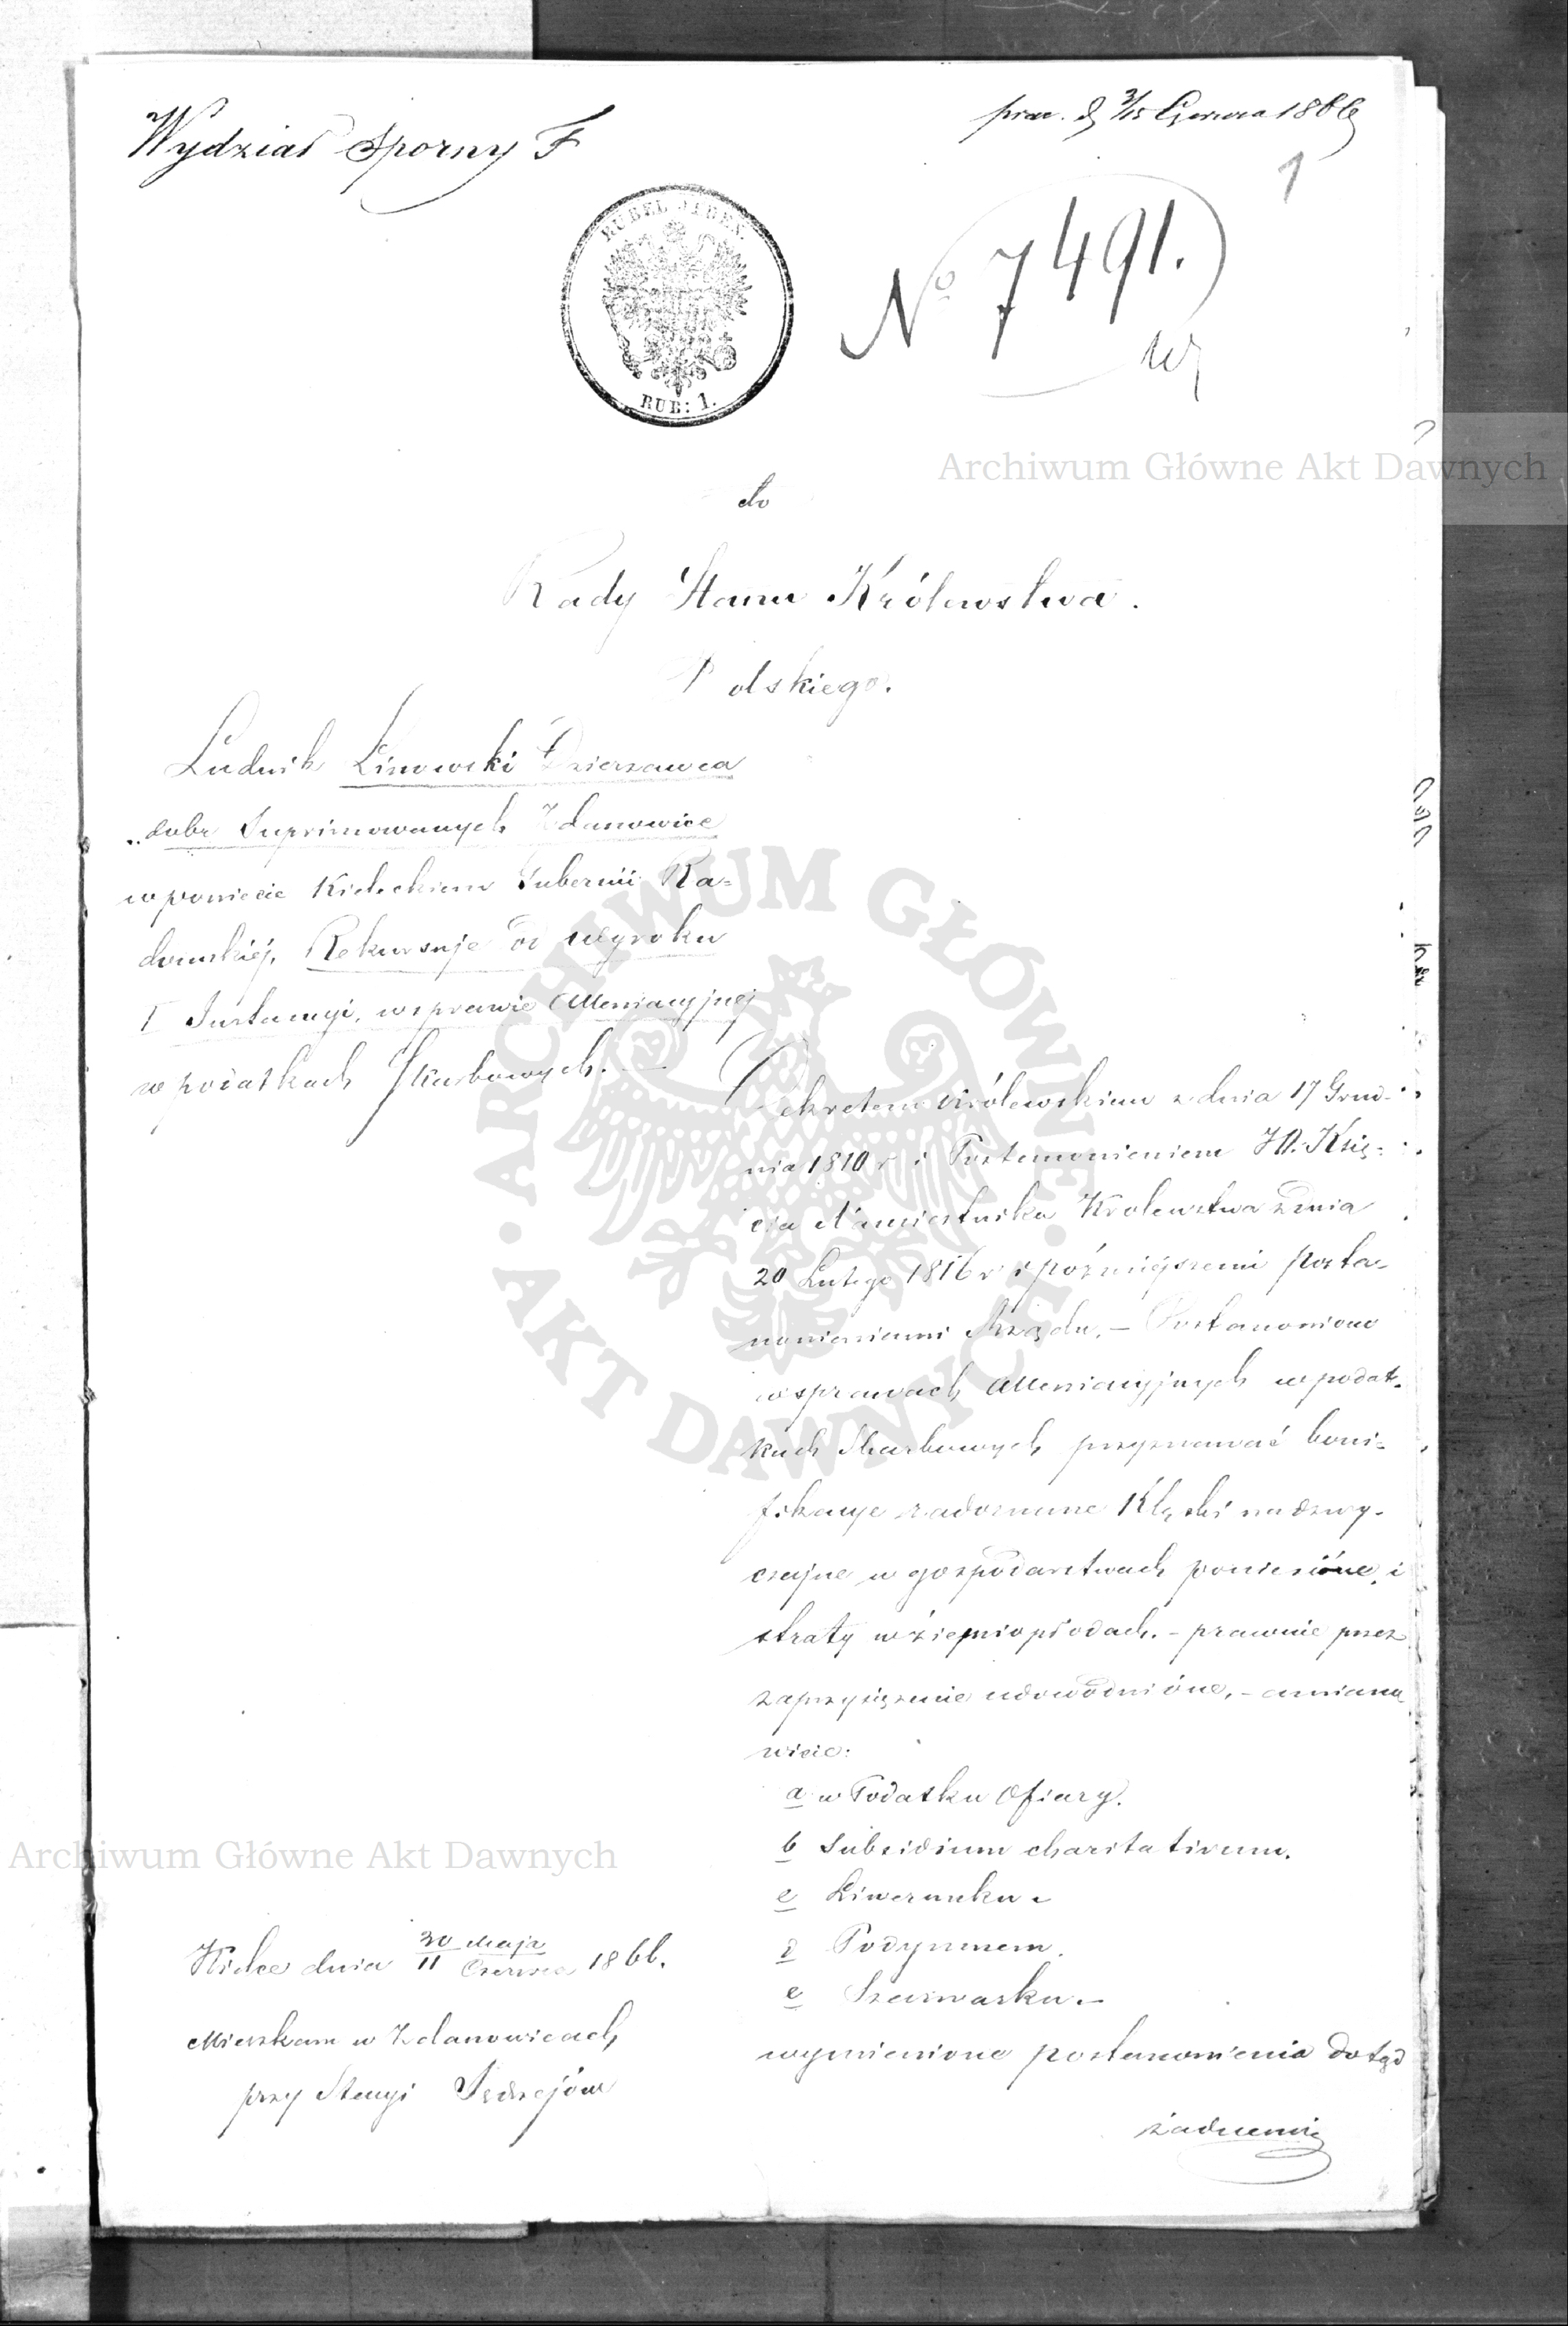 Wydział Sporny F
prez. d 3/15 Czerwca 1866
1
RUBEL SREB.
RUB: 1.
No 7491.
Archiwum Główne Akt Dawnych
do
Rady Stanu Królewstwa.
Polskiego.
Ludwik Linowski Dzierzawca
dobr Suprimowanych Zdanowice
w powiecie Kieleckiem Gubernii Ra=
domskiéj, Rekursuje od wyroku
I Instancyi, w sprawie Allewiacyjnej
w podatkach Skarbowych. —
ARCHIWUM GŁÓWNE AKT DAWNYCH
Dekretem Królewskim z dnia 17 Grud-
nia 1810 r i Postanowieniem JO. Xsię=
cia Namiestnika Krolewstwa z dnia
20 Lutego 1816 r i poźniejszemi posta=
nowieniami Rządu, — Postanowiono
w sprawach Allewiacyjnych w podat-
kach Skarbowych przyznawać boni=
fikacye za doznane Klęski nadzwy-
czajne w gospodarstwach poniesióne, i
straty w ziemiopłodach. – prawnie przez
zaprzysiężenie udowodnióne, – a miano
wicie:
a w Podatku Ofiary.
b Subsidium charitativum.
c Liwerunku.
d Podymnem.
e Szarwarku. –
wymienione postanowienia dotąd
żadnemi
Archiwum Główne Akt Dawnych
Kielce dnia 30 Maja / 11 Czerwca 1866.
Mieszkam w Zdanowicach
przy Stacyi Jędrzejów